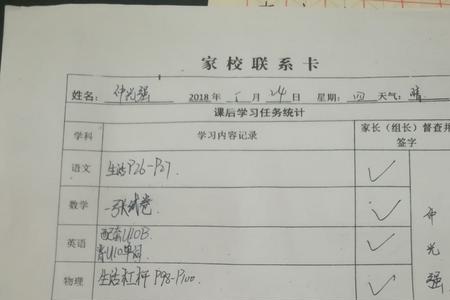 家校联系卡
姓名: 仲光强 2018年 5 月 24 日 星期: 四 天气: 晴
课后学习任务统计
学科 学习内容记录 家长（组长）督查并
签字
语文 生活P26-P27.
数学 一张试卷
英语 配套U10B.
U10单词
物理 生活杠杆 P98-P100.
仲
光
强